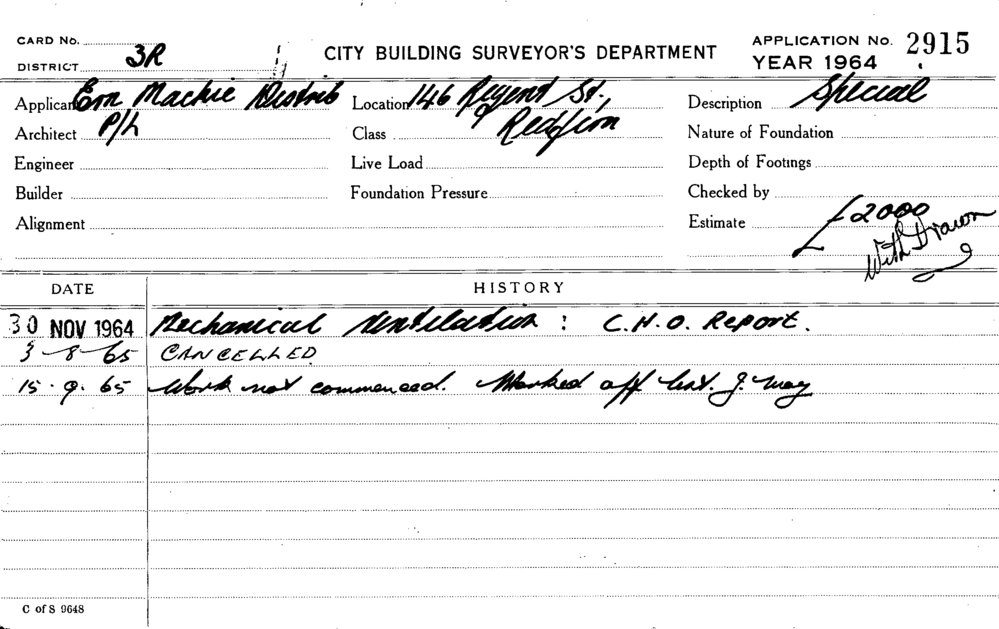 CARD No.
DISTRICT 3R
CITY BUILDING SURVEYOR'S DEPARTMENT
APPLICATION No. 2915
YEAR 1964
Applicant Ern Mackie Distrib
P/L
Location 146 Regent St.,
Redfern
Description Special
Architect
Class
Nature of Foundation
Engineer
Live Load
Depth of Footings
Builder
Foundation Pressure
Checked by
Alignment
Estimate £2000
WithDrawn
DATE
HISTORY
30 NOV 1964 Mechanical Ventilation : C.H.O. Report.
3-8-65 CANCELLED
15.9.65 Work not commenced. Marked off list. J. May
C of S 9648